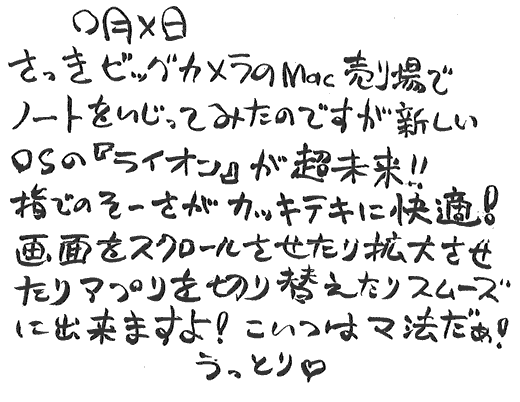 〇月×日
さっきビッグカメラのMac売り場で
ノートをいじってみたのですが新しい
OSの『ライオン』が超未来!!
指でのそーさがカッキテキに快適!
画面をスクロールさせたり拡大させ
たりアプリを切り替えたりスムーズ
に出来ますよ!こいつはマ法だぁ!
うっとり♡